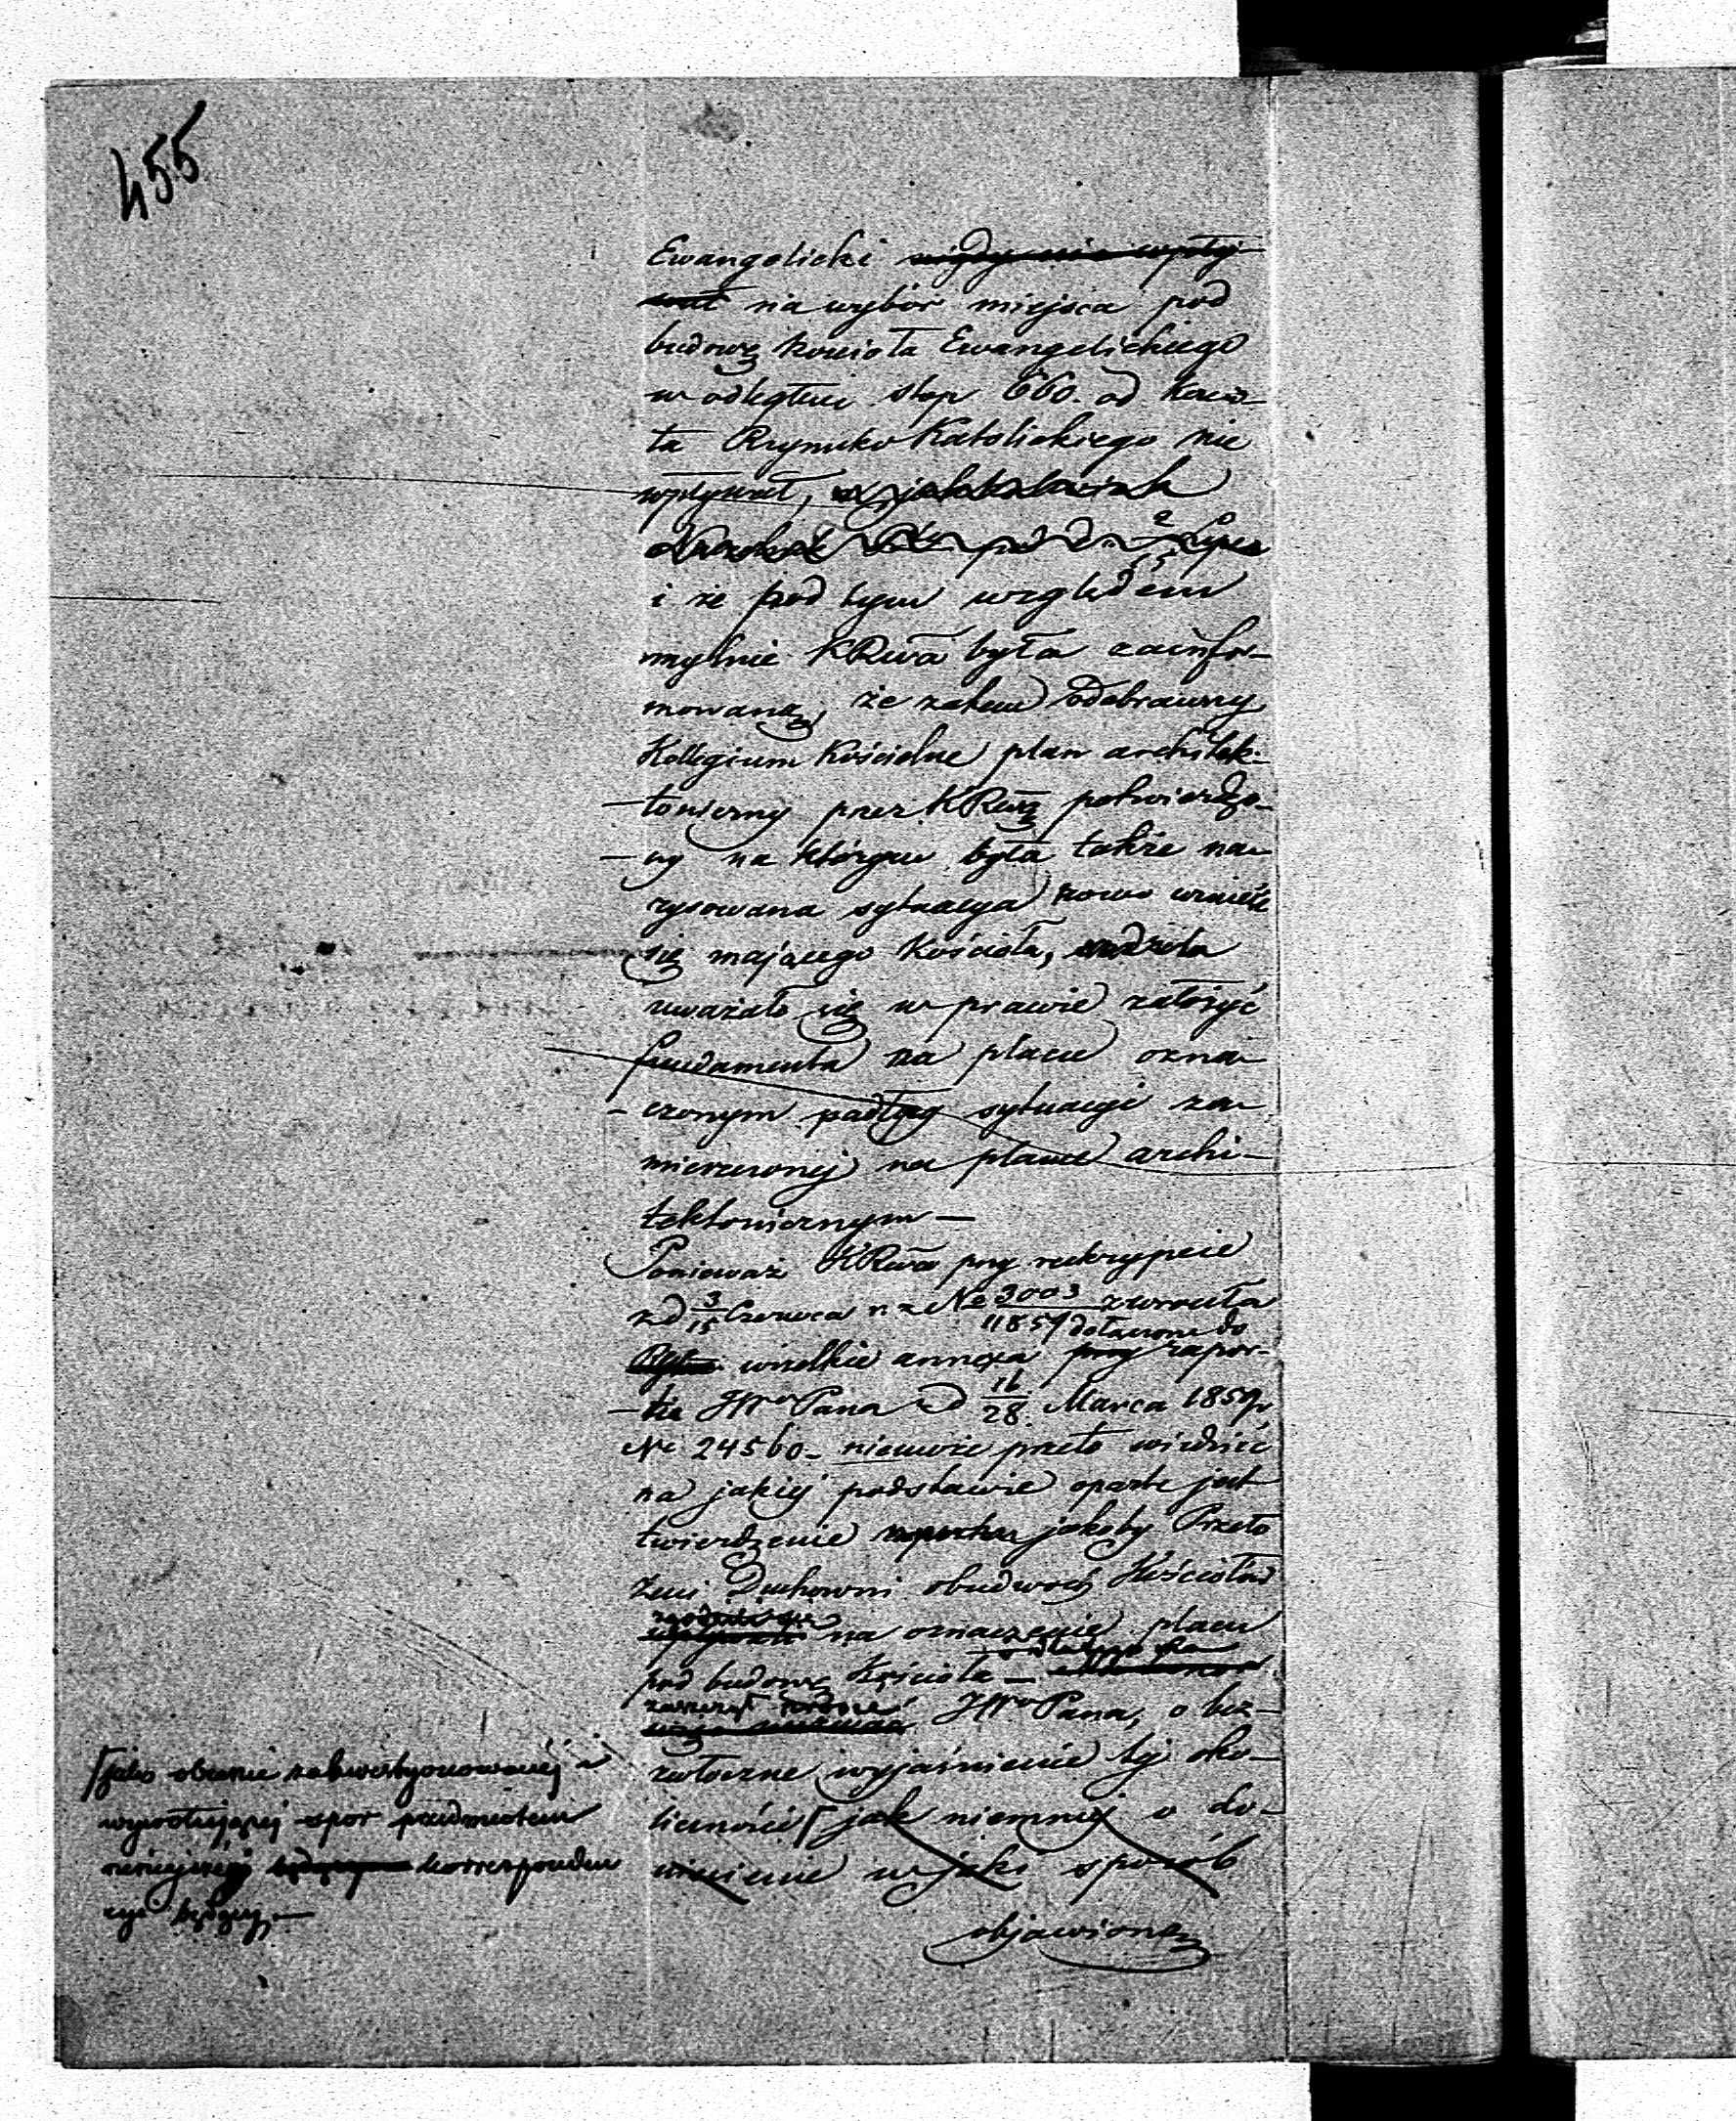 455
Ewangelicki nigdy nie wpły-
wał na wybór miejsca pod
budowę kościoła Ewangelickiego
w odległści stóp 660. od Kościo-
ła Rzymsko Katolickiego nie
wpływał,
i że pod tym względem
mylnie KRwa była zainfor-
mowaną, że zatem odebrawszy
Kollegium Kościelne plan architek-
-toniczny przez KRwą potwierdzo-
-ny na którym była także na-
rysowana sytuacya nowo wznieść
się mającego Kościoła,
uważało się w prawie założyć
fundamenta na placu ozna-
-czonym podług sytuacyi za-
mierzonej na planie archi-
tektonicznym —
Ponieważ KRwa przy reskrypcie
z d 3/15 Czerwca r z No 3003/11859 zwróciła
wszelkie annexa przy dołączone do rapor-
-tu JWo Pana z d 16/28 Marca 1859 r
No 24560 – niemoże przeto wiedzieć
na jakiej podstawie oparte jest
twierdzenie jakoby Przeło
żeni Duchowni obudwóch Kościołów
zgodzili się na oznaczenie placu
pod budowę Kościoła —
zaszczyt prosić JWo Pana, o bez-
zwłoczne wyjaśnienie tej oko-
liczności ⌈ jak niemniej o do-
niesienie w jaki sposób
objawioną
⌈jako obecnie zakwestyonowanej i
wywołującej spór przedmiotem
niniejszej będącym korresponden
cyi będącej. —